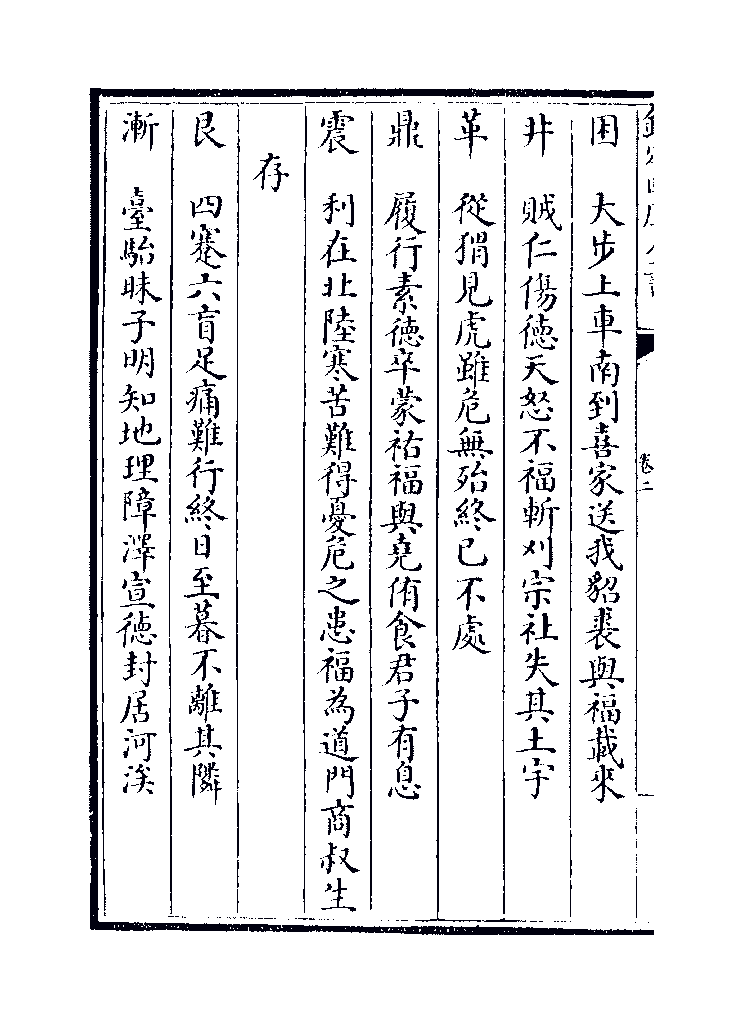 困　大步上車南到喜家送我貂裘與福載來
井　賊仁傷德天怒不福斬刈宗社失其土宇
革　從猬見虎雖危無殆終已不處
鼎　履行素德卒蒙祐福與堯侑食君子有息
震　利在北陸寒苦難得憂危之患福為道門商叔生
存
艮　四蹇六盲足痛難行終日至暮不離其隣
漸　臺駘昧子明知地理障澤宣德封居河涘
卷二